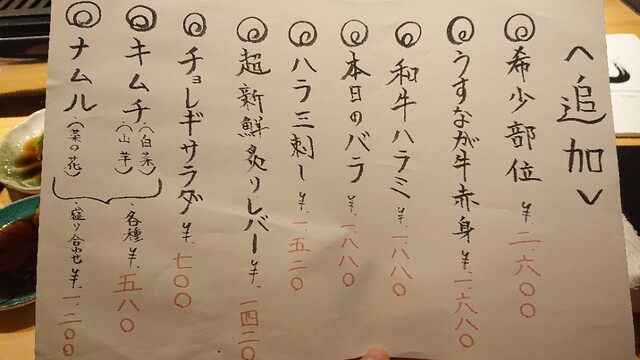 <追加>
希少部位 ¥.二.六〇〇
うすなが牛赤身 ¥.一.六八〇
和牛ハラミ ¥.一.八八〇
本日のバラ ¥.一.八八〇
ハラミ刺し ¥.一.五二〇
超新鮮炙りレバー ¥.一四二〇
チョレギサラダ ¥.七〇〇
キムチ(白菜)(山芋)
ナムル(菜の花)
・各種 ¥.五八〇
・盛り合わせ ¥.一.二〇〇